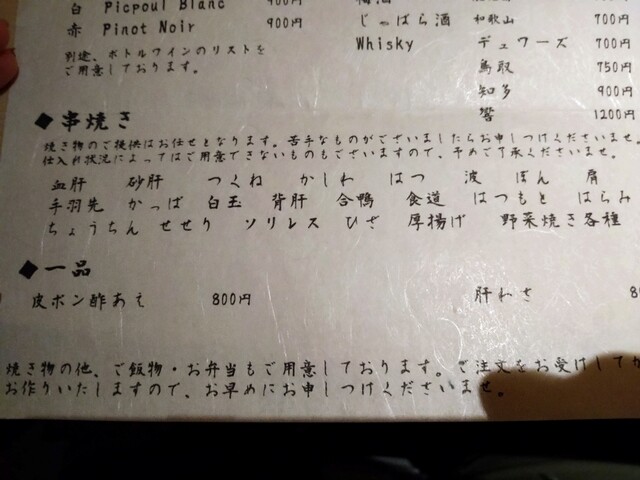 白 Picpoul Blanc 900円
赤 Pinot Noir 900円
別途、ボトルワインのリストを
ご用意しております。
じゃばら酒 和歌山 700円
Whisky デュワーズ 700円
鳥取 750円
知多 900円
響 1200円
◆串焼き
焼き物のご提供はお任せとなります。苦手なものがございましたらお申しつけくださいませ。
仕入れ状況によってはご用意できないものもございますので、予めご了承くださいませ。
血肝 砂肝 つくね かしわ はつ 波 ぼん 肩
手羽先 かっぱ 白玉 背肝 合鴨 食道 はつもと はらみ
ちょうちん せせり ソリレス ひざ 厚揚げ 野菜焼き各種
◆一品
皮ポン酢あえ 800円 肝わさ
焼き物の他、ご飯物・お弁当もご用意しております。ご注文をお受けしてか
お作りいたしますので、お早めにお申しつけくださいませ。